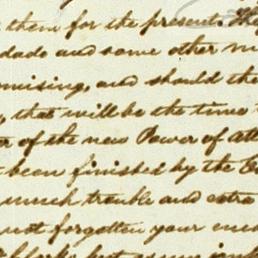 them for the present. They
dado and some other m
mising, and should the
that will be the time
of the new Power of att
been finished by the
much trouble and extra
not forgotten your